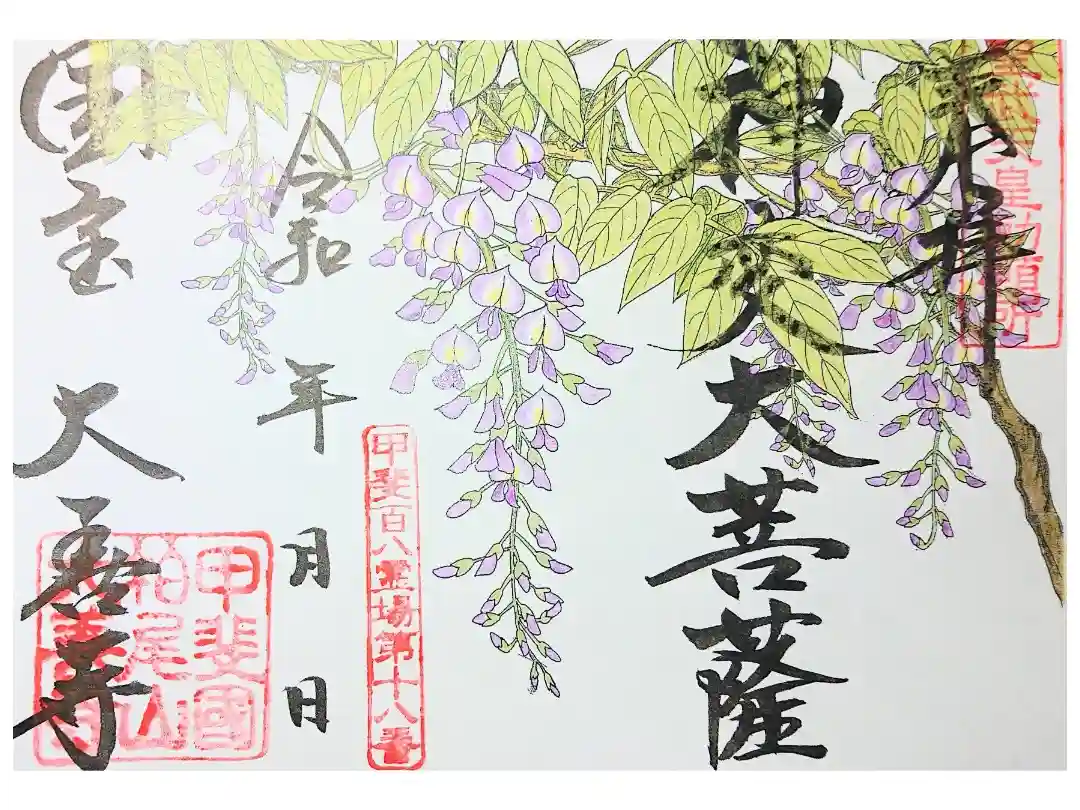 奉拝
聖武天皇勅願所
神変大菩薩
甲斐百八霊場第十八番
令和 年 月 日
国宝 大善寺
甲斐國
柏尾山
大善寺